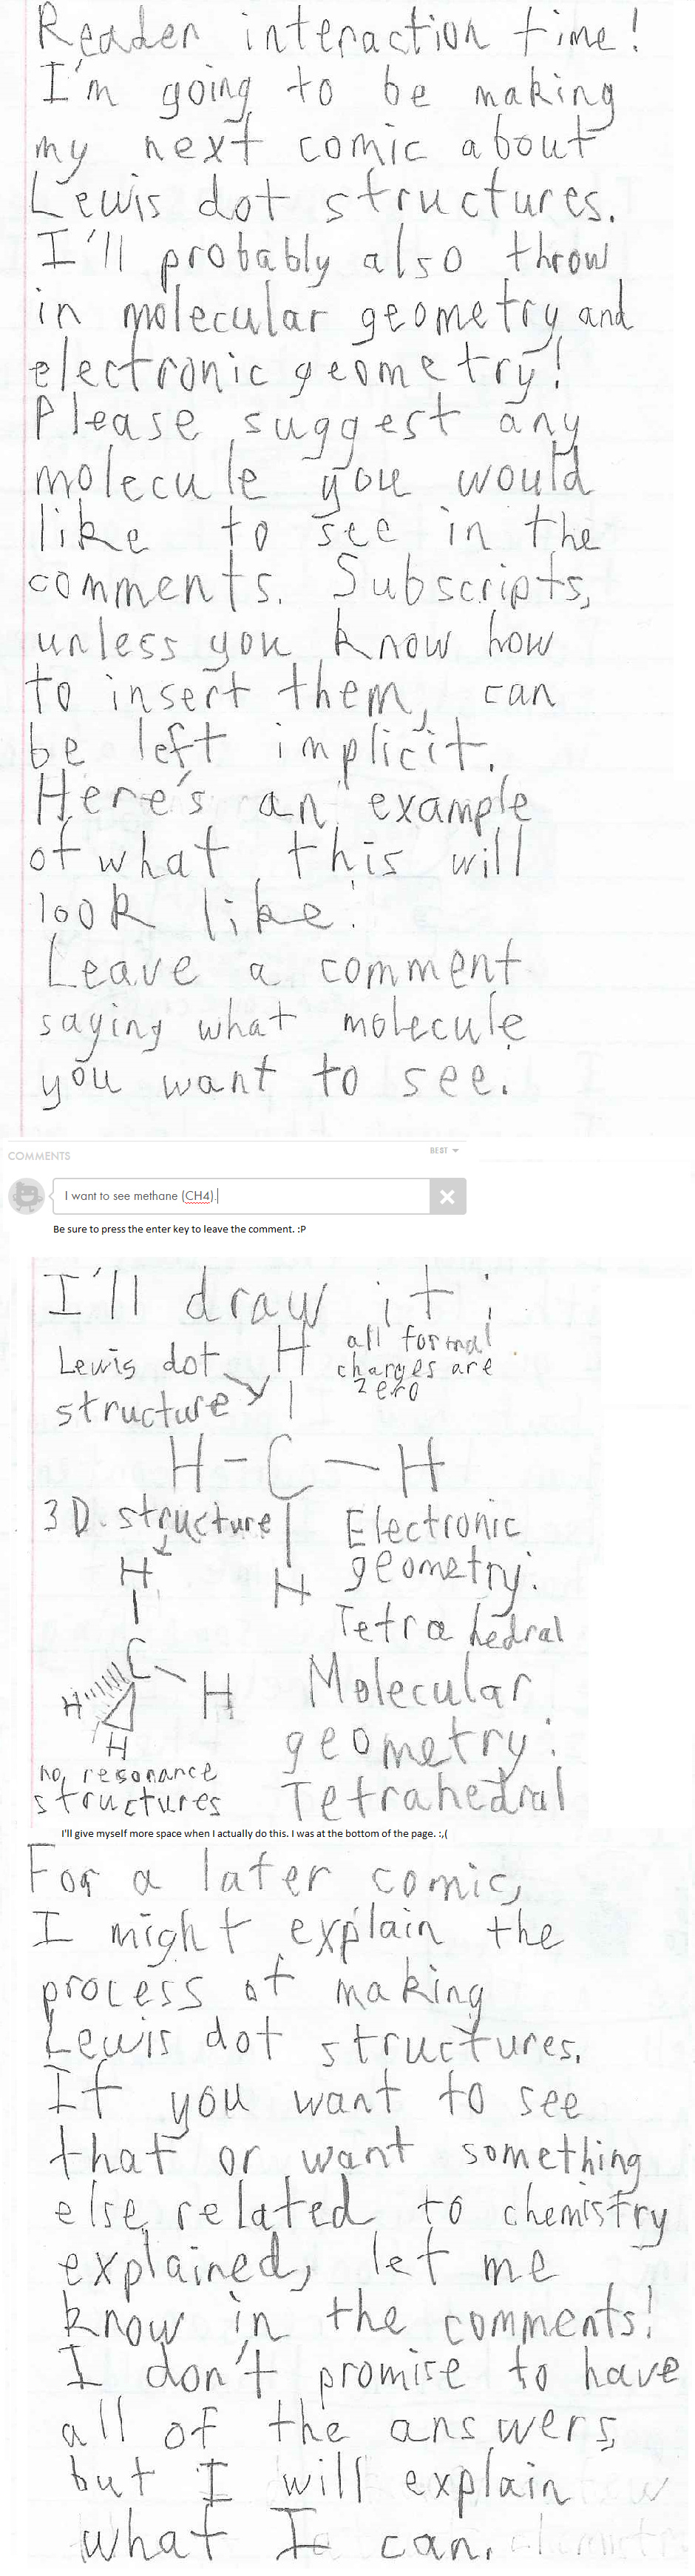 Reader interaction time!
I'm going to be making
my next comic about
Lewis dot structures.
I'll probably also throw
in molecular geometry and
electronic geometry!
Please suggest any
molecule you would
like to see in the
comments. Subscripts,
unless you know how
to insert them, can
be left implicit.
Here's an example
of what this will
look like:
Leave a comment
saying what molecule
you want to see.
COMMENTS
BEST
I want to see methane (CH4).
Be sure to press the enter key to leave the comment. :P
I'll draw it:
Lewis dot
structure
H
all formal
charges are
zero
H-C-H
H
3D structure
H
C
H
H
H
Electronic
geometry:
Tetrahedral
Molecular
geometry:
Tetrahedral
no resonance
structures
I'll give myself more space when I actually do this. I was at the bottom of the page. :,(
For a later comic,
I might explain the
process of making
Lewis dot structures.
If you want to see
that or want something
else related to chemistry
explained, let me
know in the comments!
I don't promise to have
all of the answers,
but I will explain
what I can.